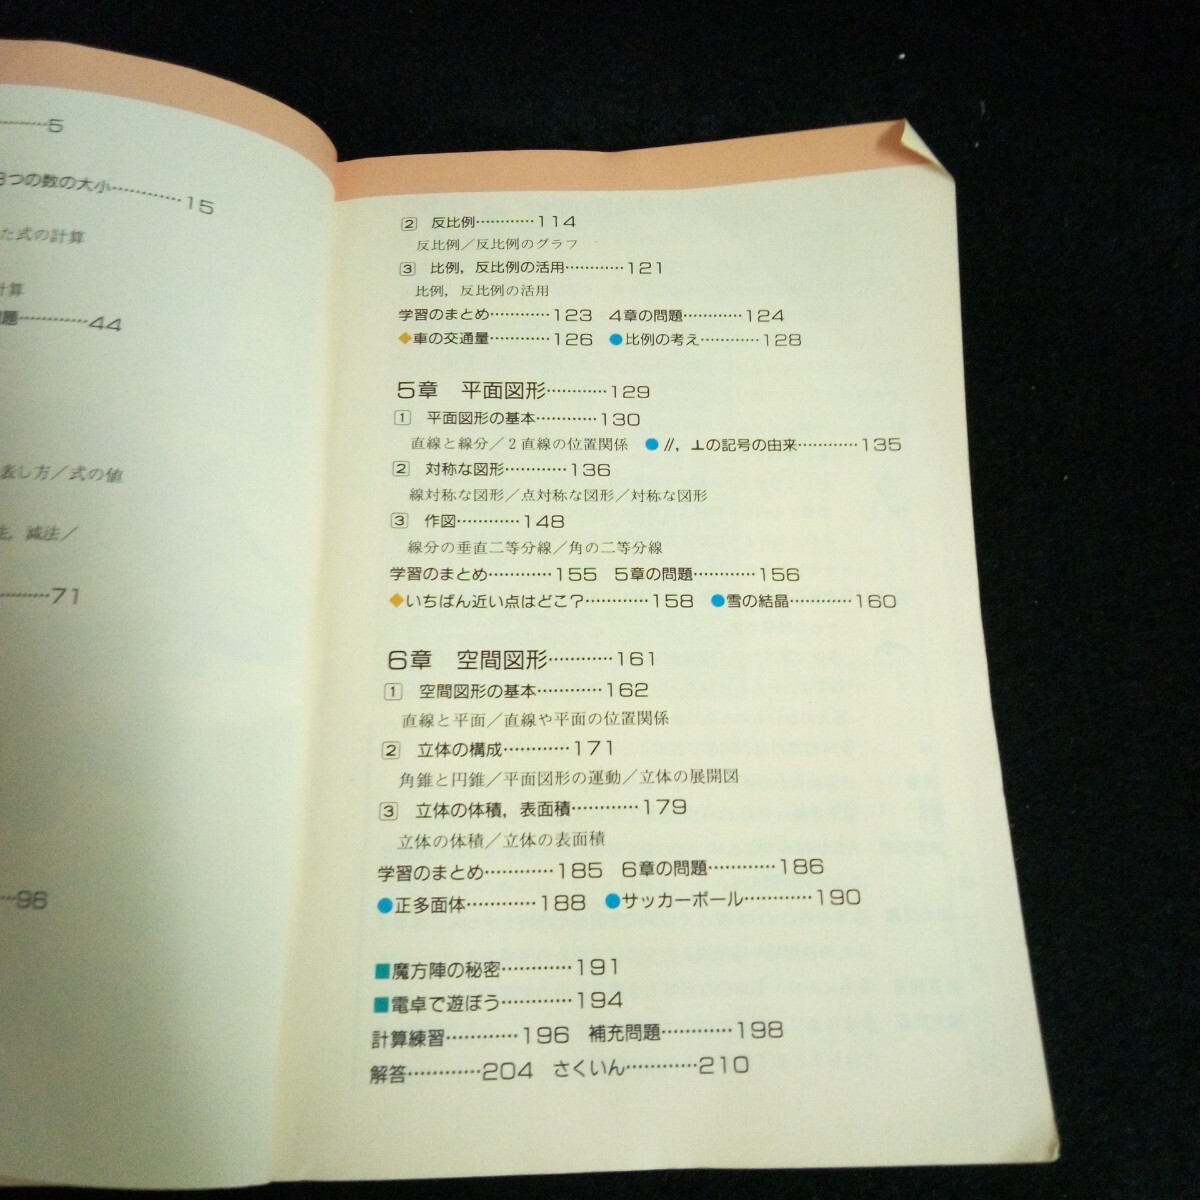 …………5
3つの数の大小…………15
た式の計算
計算
題…………44
表し方／式の値
法，減法／
…………71
…………96
2 反比例…………114
反比例／反比例のグラフ
3 比例，反比例の活用…………121
比例，反比例の活用
学習のまとめ…………123 4章の問題…………124
◆車の交通量…………126 ●比例の考え…………128
5章 平面図形…………129
1 平面図形の基本…………130
直線と線分／2直線の位置関係 ●//，⊥の記号の由来…………135
2 対称な図形…………136
線対称な図形／点対称な図形／対称な図形
3 作図…………148
線分の垂直二等分線／角の二等分線
学習のまとめ…………155 5章の問題…………156
◆いちばん近い点はどこ？…………158 ●雪の結晶…………160
6章 空間図形…………161
1 空間図形の基本…………162
直線と平面／直線や平面の位置関係
2 立体の構成…………171
角錐と円錐／平面図形の運動／立体の展開図
3 立体の体積，表面積…………179
立体の体積／立体の表面積
学習のまとめ…………185 6章の問題…………186
●正多面体…………188 ●サッカーボール…………190
■魔方陣の秘密…………191
■電卓で遊ぼう…………194
計算練習…………196 補充問題…………198
解答…………204 さくいん…………210